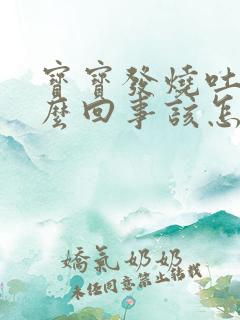 寶寶發燒吐
麼回事該怎
嬌氣奶奶
未经同意禁止转载